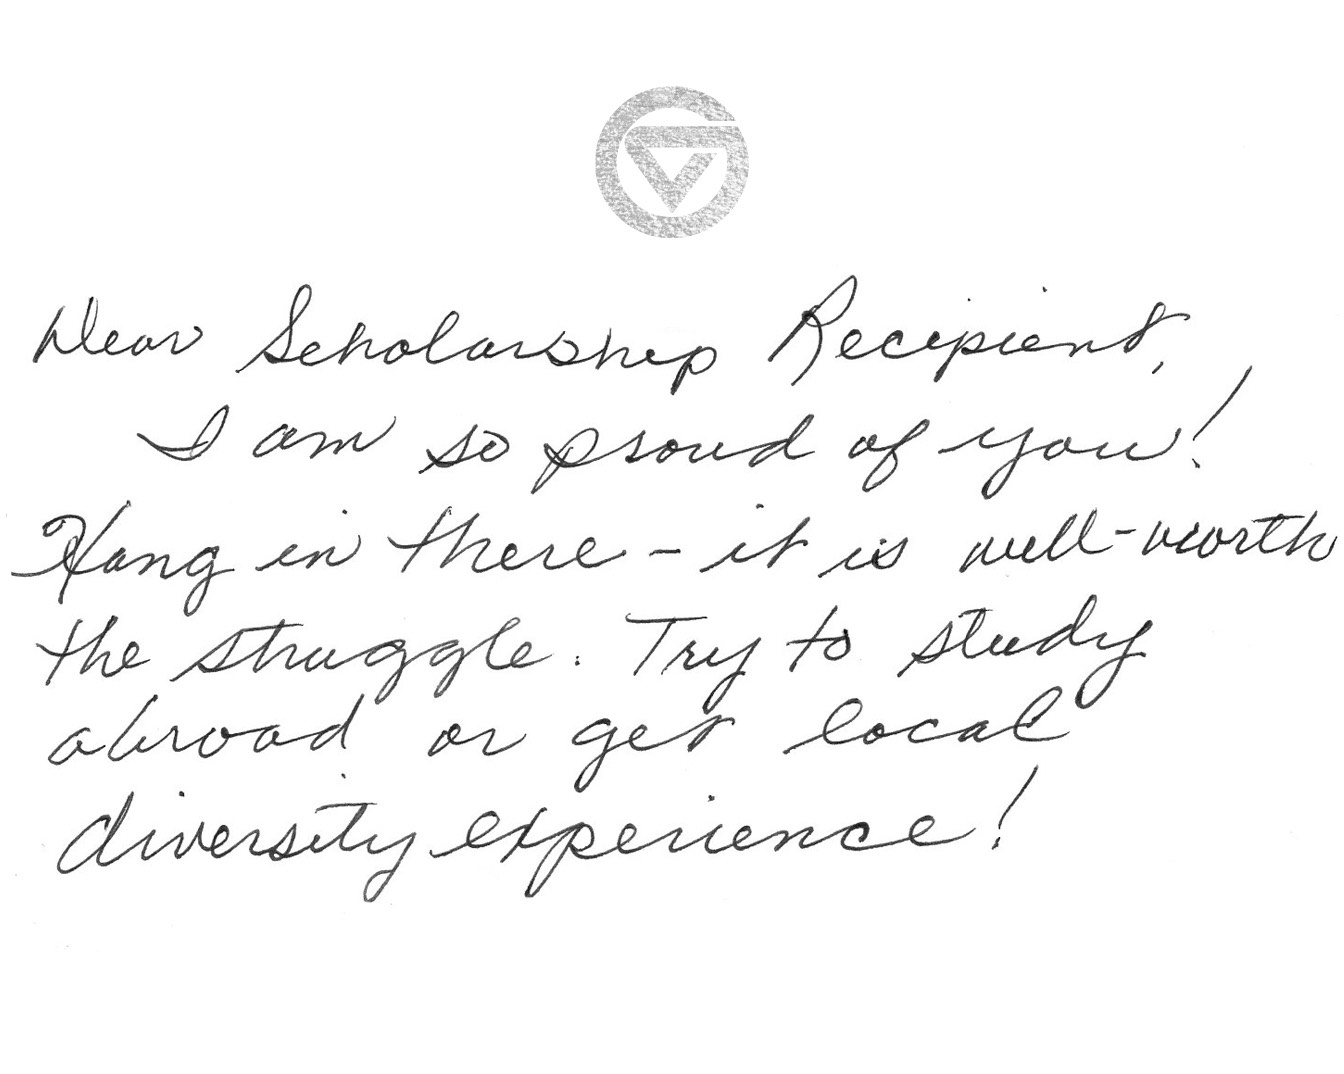 Dear Scholarship Recipient,
I am so proud of you!
Hang in there - it is well-worth
the struggle. Try to study
abroad or get local
diversity experience!